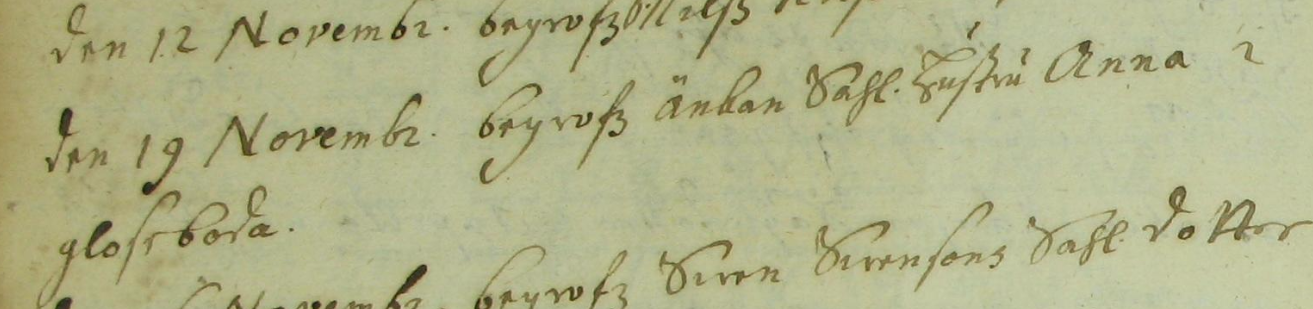 den 12 Novembr. begrofz
den 19 Novembr. begrofz änkan Sahl. hustru Anna i
gloseboda.
Novembr. begrofz Suen Suensons Sahl. dotter